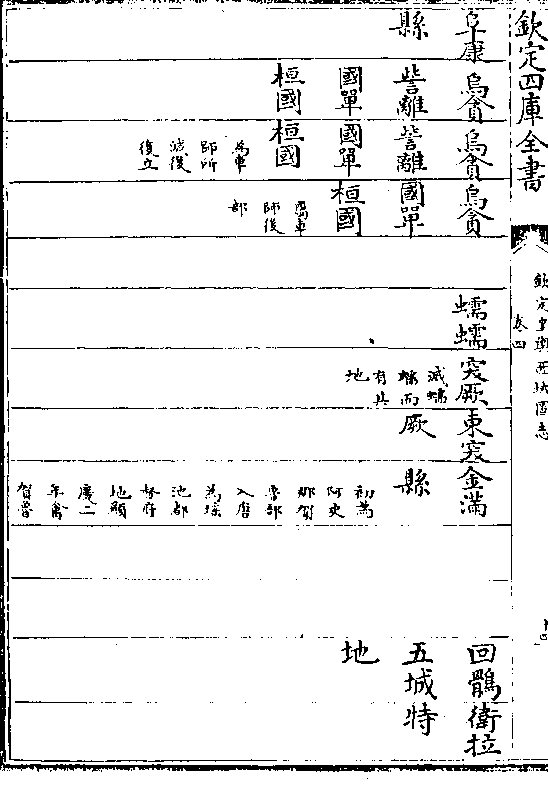 欽定四庫全書
欽定皇輿西域圖志
卷四
阜康
縣
烏貪
訾離
國單
桓國
烏貪
訾離
國單
桓國
為車
師所
滅後
復立
烏貪
國單
桓國
屬車
師後
部
蠕蠕
突厥
滅蠕
蠕而
有其
地
東突
厥
金滿
縣
初為
阿史
那賀
魯部
入唐
為瑤
池都
督府
地顯
慶二
年禽
賀魯
回鶻
五城
地
衛拉
特